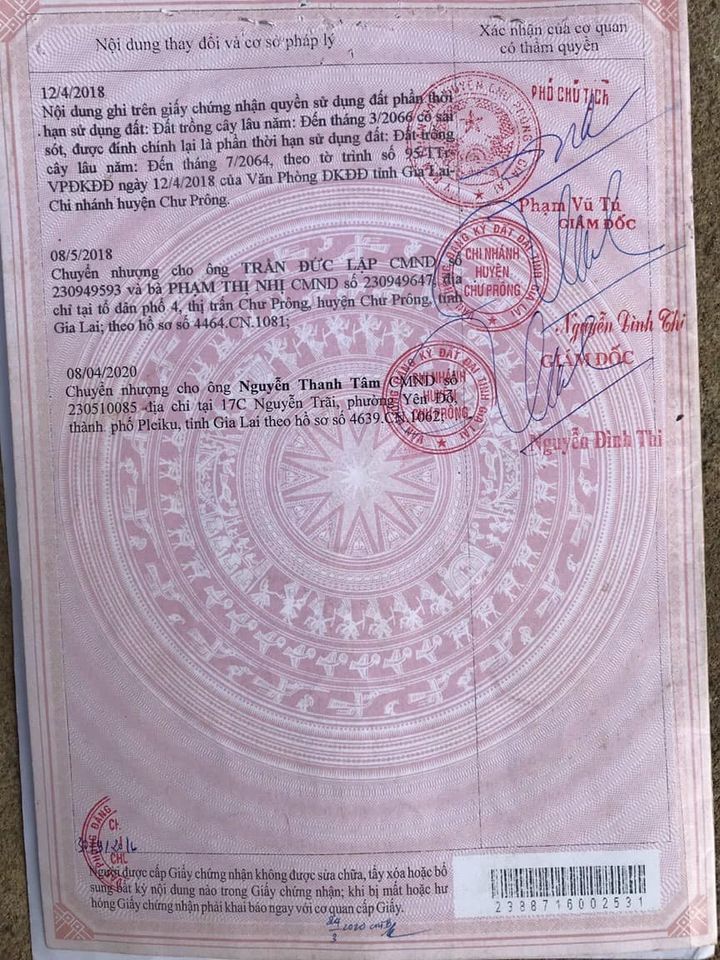 Nội dung thay đổi và cơ sở pháp lý
Xác nhận của cơ quan
có thẩm quyền
12/4/2018
Nội dung ghi trên giấy chứng nhận quyền sử dụng đất phần thời
hạn sử dụng đất: Đất trồng cây lâu năm: Đến tháng 3/2066 có sai
sót, được đính chính lại là phần thời hạn sử dụng đất: Đất trồng
cây lâu năm: Đến tháng 7/2064, theo tờ trình số 95/TTr-
VPĐKĐĐ ngày 12/4/2018 của Văn Phòng ĐKĐĐ tỉnh Gia Lai-
Chi nhánh huyện Chư Prông.
PHÓ CHỦ TỊCH
Phạm Vũ Tú
08/5/2018
Chuyển nhượng cho ông TRẦN ĐỨC LẬP CMND số
230949593 và bà PHẠM THỊ NHỊ CMND số 230949647, địa
chỉ tại tổ dân phố 4, thị trấn Chư Prông, huyện Chư Prông, tỉnh
Gia Lai; theo hồ sơ số 4464.CN.1081;
GIÁM ĐỐC
VĂN PHÒNG ĐĂNG KÝ ĐẤT ĐAI TỈNH GIA LAI
CHI NHÁNH
HUYỆN
CHƯ PRÔNG
Nguyễn Đình Thi
08/04/2020
Chuyển nhượng cho ông Nguyễn Thanh Tâm CMND số
230510085 địa chỉ tại 17C Nguyễn Trãi, phường Yên Đỗ,
thành phố Pleiku, tỉnh Gia Lai theo hồ sơ số 4639.CN.1062;
GIÁM ĐỐC
VĂN PHÒNG ĐĂNG KÝ ĐẤT ĐAI TỈNH GIA LAI
CHI NHÁNH
HUYỆN
CHƯ PRÔNG
Nguyễn Đình Thi
Người được cấp Giấy chứng nhận không được sửa chữa, tẩy xóa hoặc bổ
sung bất kỳ nội dung nào trong Giấy chứng nhận; khi bị mất hoặc hư
hỏng Giấy chứng nhận phải khai báo ngay với cơ quan cấp Giấy.
2388716002531